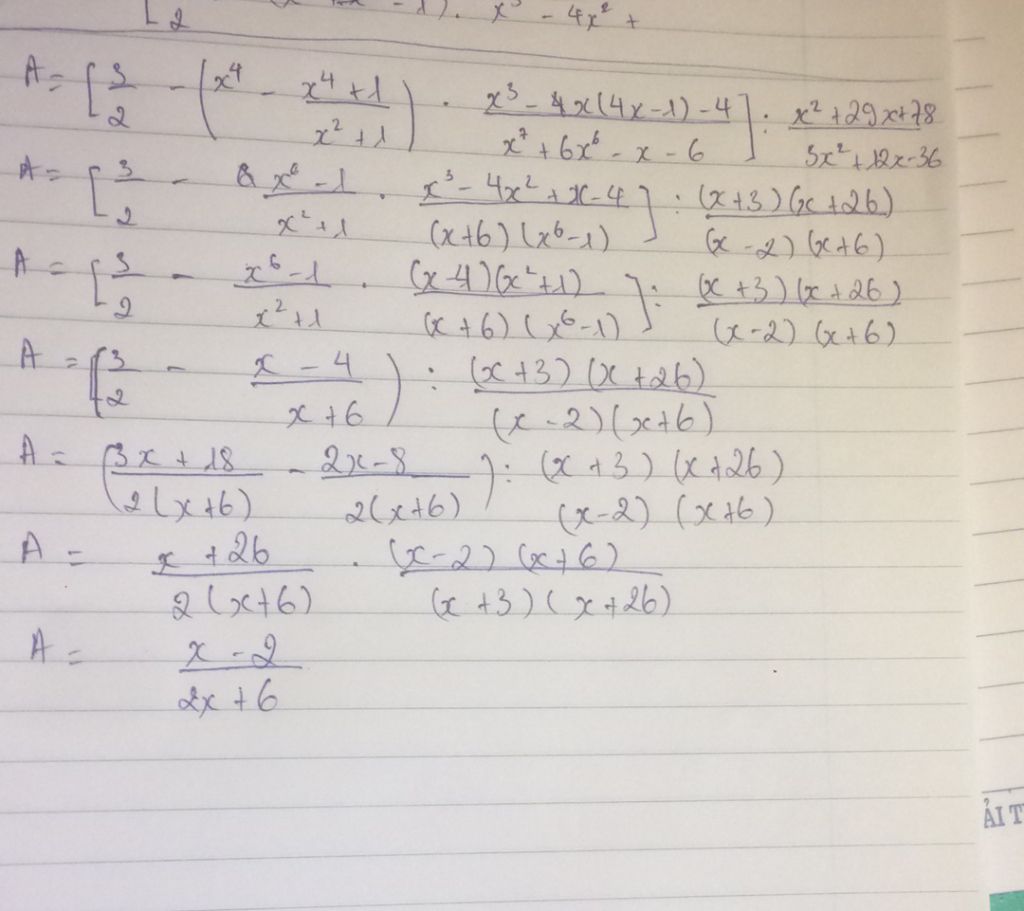 [ 2 - 1). x³ - 4x² +
A = [ 3/2 - ( x⁴ - (x⁴ + 1)/(x² + 1) ) . (x³ - 4x(4x - 1) - 4)/(x⁷ + 6x⁶ - x - 6) ] : (x² + 29x + 78)/(3x² + 12x - 36)
A = [ 3/2 - (x⁶ - 1)/(x² + 1) . (x³ - 4x² + x - 4)/((x + 6)(x⁶ - 1)) ] : ((x + 3)(x + 26))/((x - 2)(x + 6))
A = [ 3/2 - (x⁶ - 1)/(x² + 1) . ((x - 4)(x² + 1))/((x + 6)(x⁶ - 1)) ] : ((x + 3)(x + 26))/((x - 2)(x + 6))
A = ( 3/2 - (x - 4)/(x + 6) ) : ((x + 3)(x + 26))/((x - 2)(x + 6))
A = ( (3x + 18)/(2(x + 6)) - (2x - 8)/(2(x + 6)) ) : (x + 3)(x + 26) (x - 2)(x + 6)
A = (x + 26)/(2(x + 6)) . ((x - 2)(x + 6))/((x + 3)(x + 26))
A = (x - 2)/(2x + 6)
ẢI T